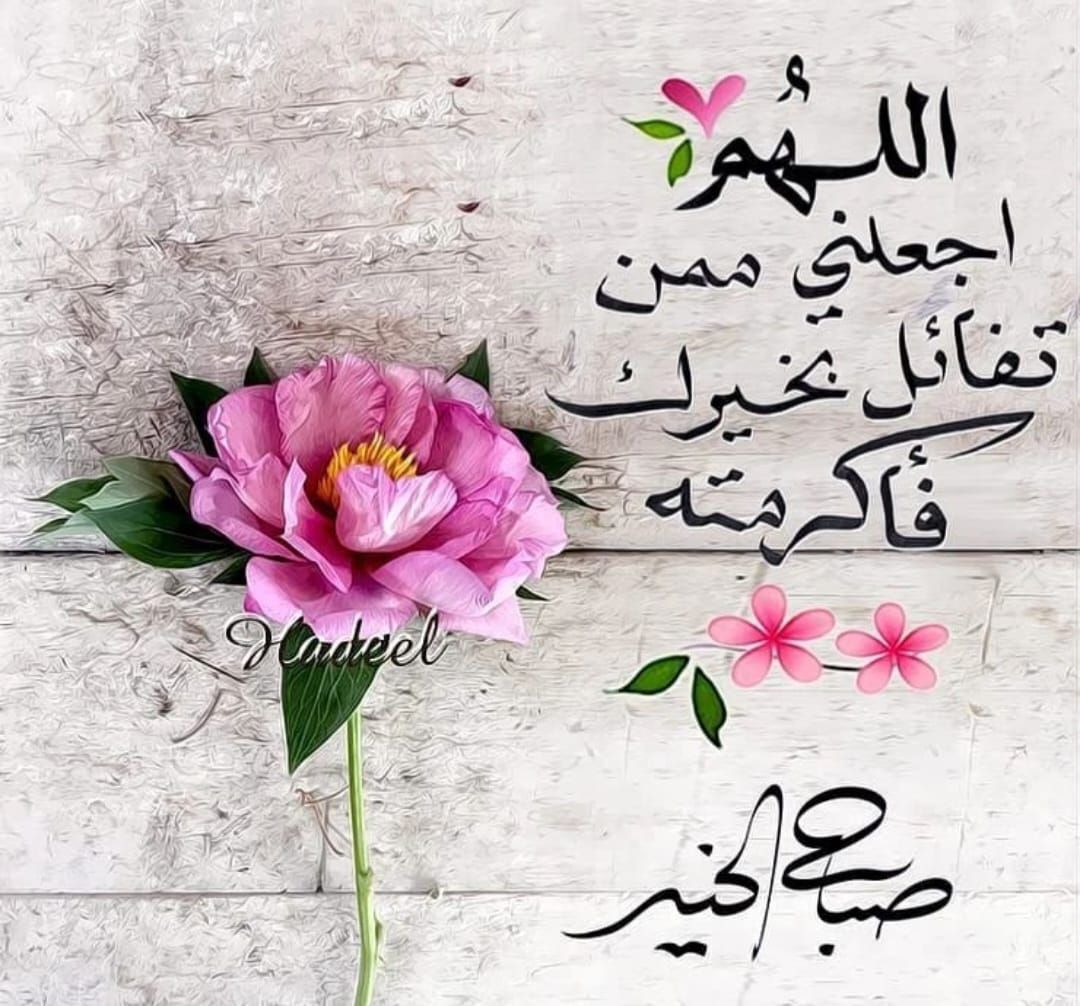 اللهُم
اجعلني ممن
تفائل بخيرك
فأكرمته
Hadeel
صباح الخير